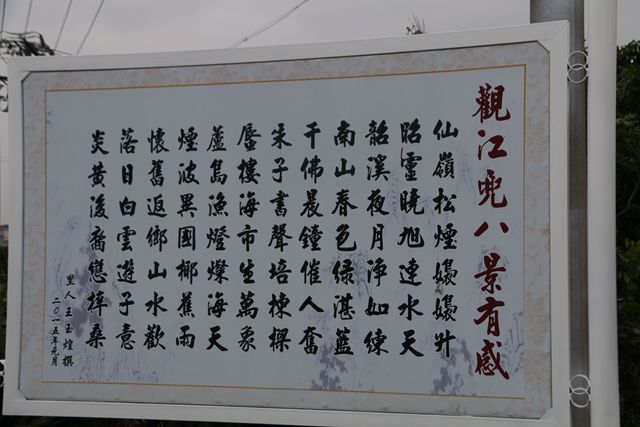 觀江兜八景有感
仙嶺松煙嫋嫋升
昭靈曉旭連水天
韶溪夜月淨如練
南山春色綠湛藍
千佛晨鐘催人奮
朱子書聲培棟樑
蜃樓海市生萬象
蘆島漁燈燦海天
煙波異國椰蕉雨
懷舊返鄉山水歡
落日白雲遊子意
炎黃後裔戀梓桑
里人王玉煌撰
二〇一五年元月